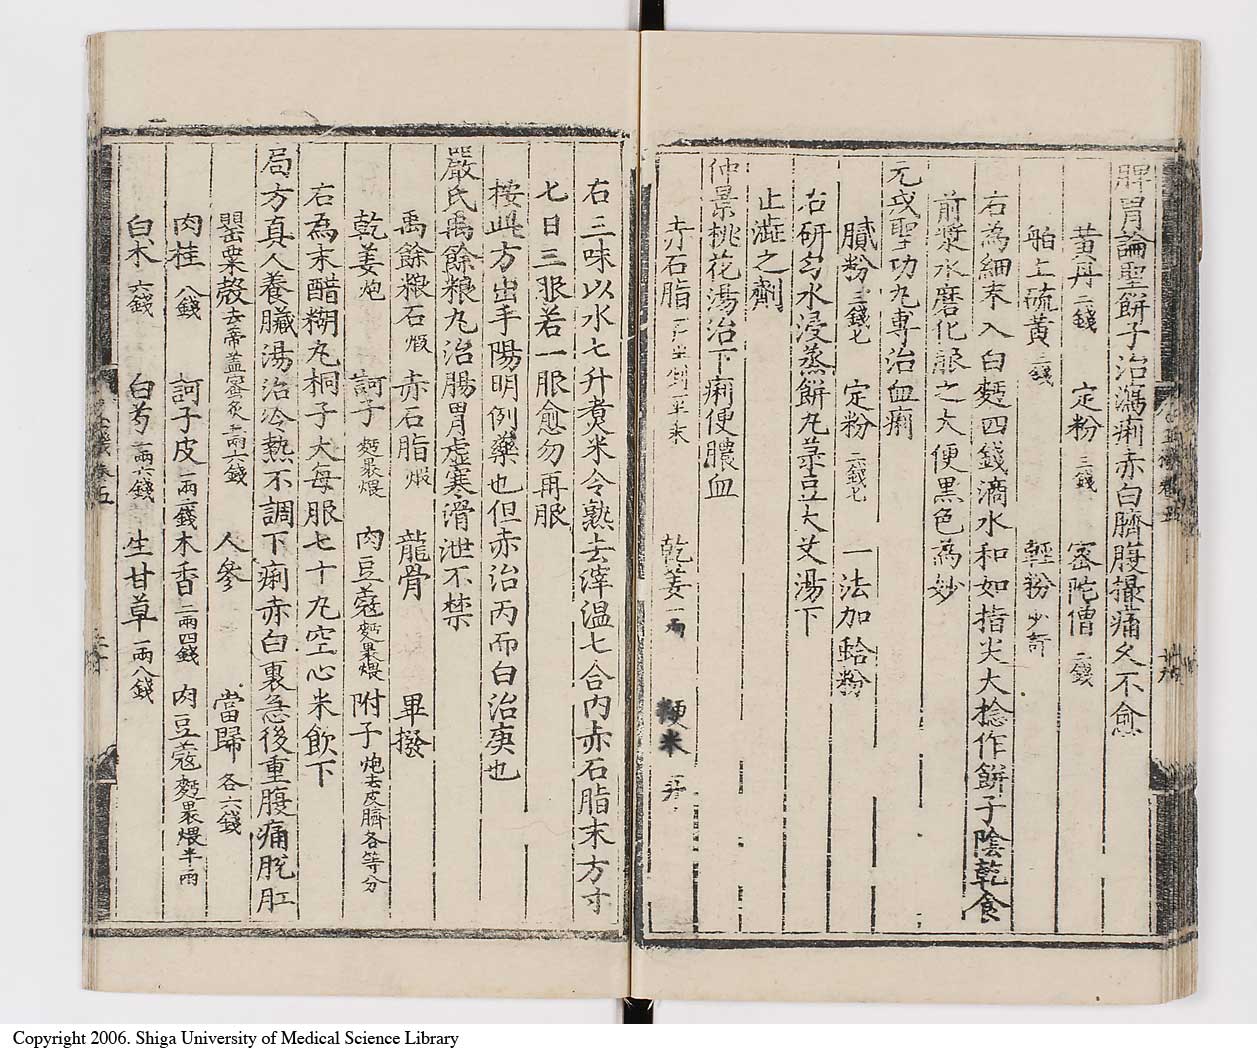 脾胃論聖餅子治瀉痢赤白臍腹撮痛久不愈
黃丹 二錢 定粉 三錢 密陀僧 二錢
舶上硫黃 三錢 輕粉 少許
右為細末入白麪四錢滴水和如指尖大捻作餅子陰乾食
前漿水磨化服之大便黑色為妙
元戎聖功丸專治血痢
膩粉 三錢匕 定粉 三錢匕 一法加蛤粉
右研勻水浸蒸餅丸菉豆大艾湯下
止澁之劑
仲景桃花湯治下痢便膿血
赤石脂 乾姜 一兩 粳米
右三味以水七升煑米令熟去滓溫七合內赤石脂末方寸
七日三服若一服愈勿再服
按此方出手陽明例藥也但赤治丙而白治庚也
嚴氏禹餘粮丸治腸胃虛寒滑泄不禁
禹餘粮石 煆 赤石脂 煆 龍骨 畢撥
乾姜 炮 訶子 麪裹煨 肉豆蔻 麪裹煨 附子 炮去皮臍各等分
右為末醋糊丸桐子大每服七十丸空心米飲下
局方真人養臟湯治冷熱不調下痢赤白裏急後重腹痛脫肛
罌粟殼 去蒂盖蜜炙二兩六錢 人參 當歸 各六錢
肉桂 八錢 訶子皮 一兩二錢 木香 二兩四錢 肉豆蔻 麪裹煨半兩
白朮 六錢 白芍 一兩六錢 生甘草 一兩八錢
Copyright 2006. Shiga University of Medical Science Library